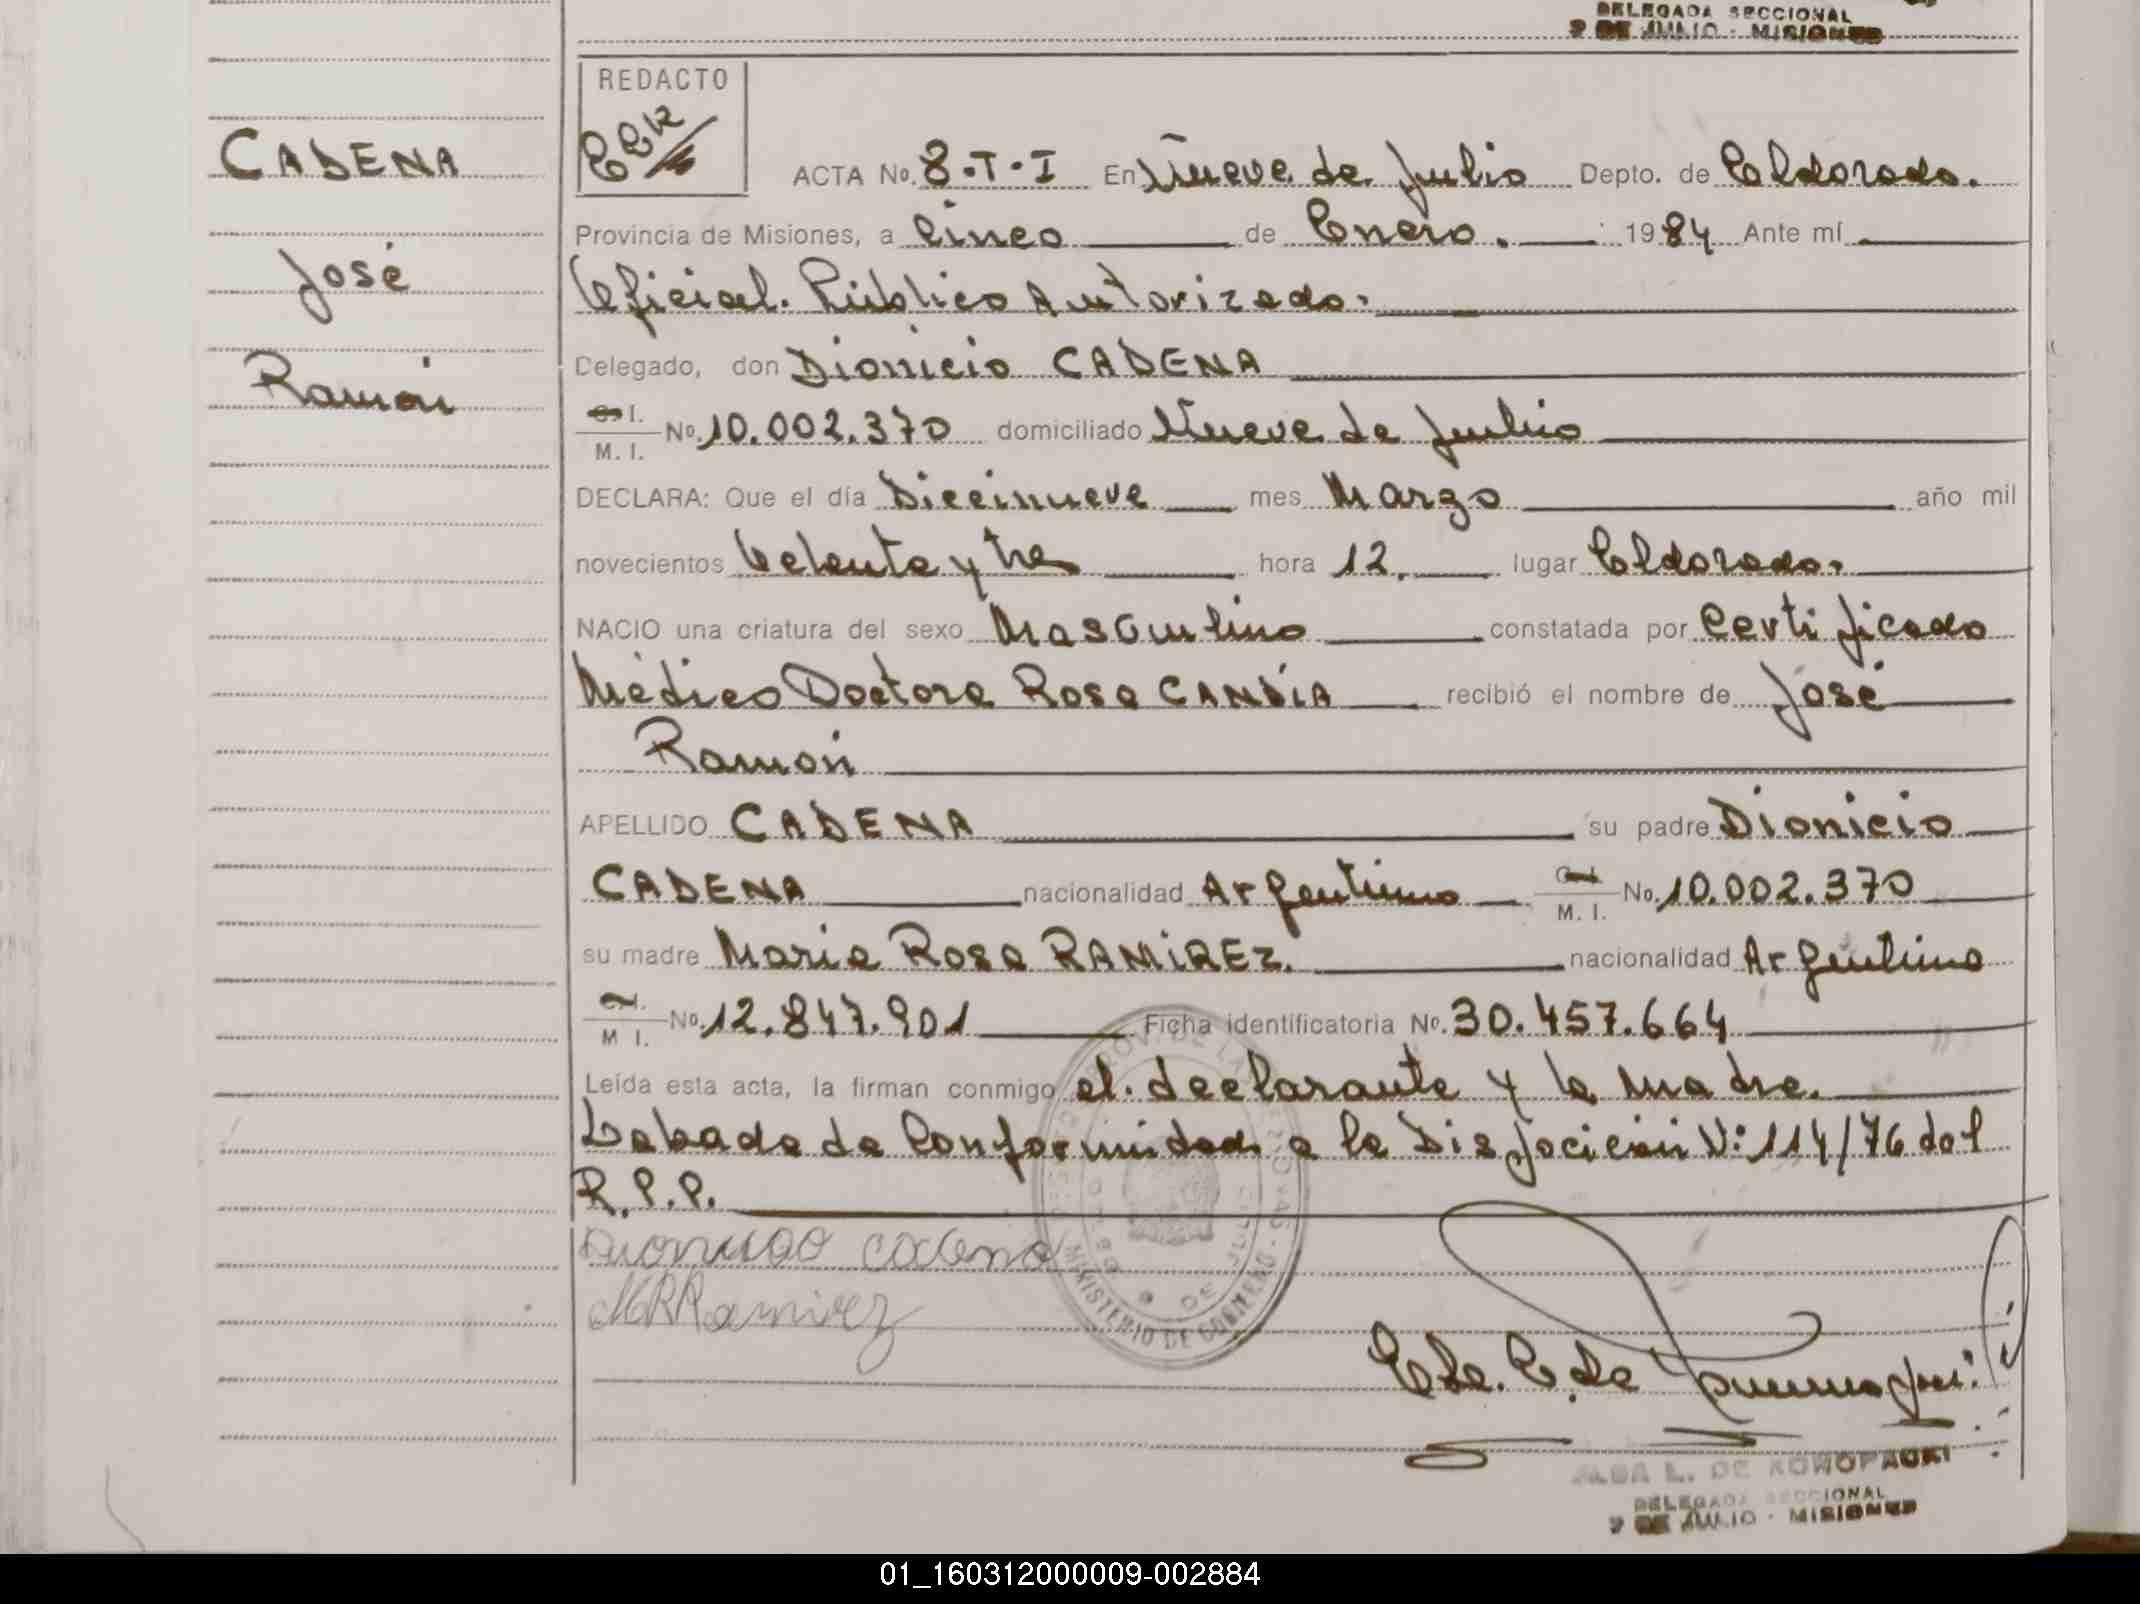 DELEGADA SECCIONAL
9 DE JULIO - MISIONES
REDACTO
CADENA
ACTA No. 8-T-I En Nueve de Julio Depto. de Eldorado.
Provincia de Misiones, a Cinco de Enero. 1984 Ante mí
José
Oficial. Público Autorizado.
Ramón
Delegado, don Dionicio CADENA
C. I. M. I. No. 10.002.370 domiciliado Nueve de Julio
DECLARA: Que el día Diecinueve mes Marzo año mil
novecientos Ochenta y tres hora 12. lugar Eldorado.
NACIO una criatura del sexo Masculino constatada por Certificado
Médico Doctora Rosa CANDIA recibió el nombre de José
Ramón
APELLIDO CADENA su padre Dionicio
CADENA nacionalidad Argentino C. I. M. I. No. 10.002.370
su madre Maria Rosa RAMIREZ. nacionalidad Argentina
C. I. M I. No. 12.847.901 Ficha identificatoria No. 30.457.664
Leída esta acta, la firman conmigo el declarante y la madre.
Labrada de Conformidad a la Disposición N: 114/76 del
R.P.P.
Cadena
MRRamirez
MINISTERIO DE GOBIERNO
L. DE KONOPACKI
DELEGADA SECCIONAL
9 DE JULIO - MISIONES
01_160312000009-002884